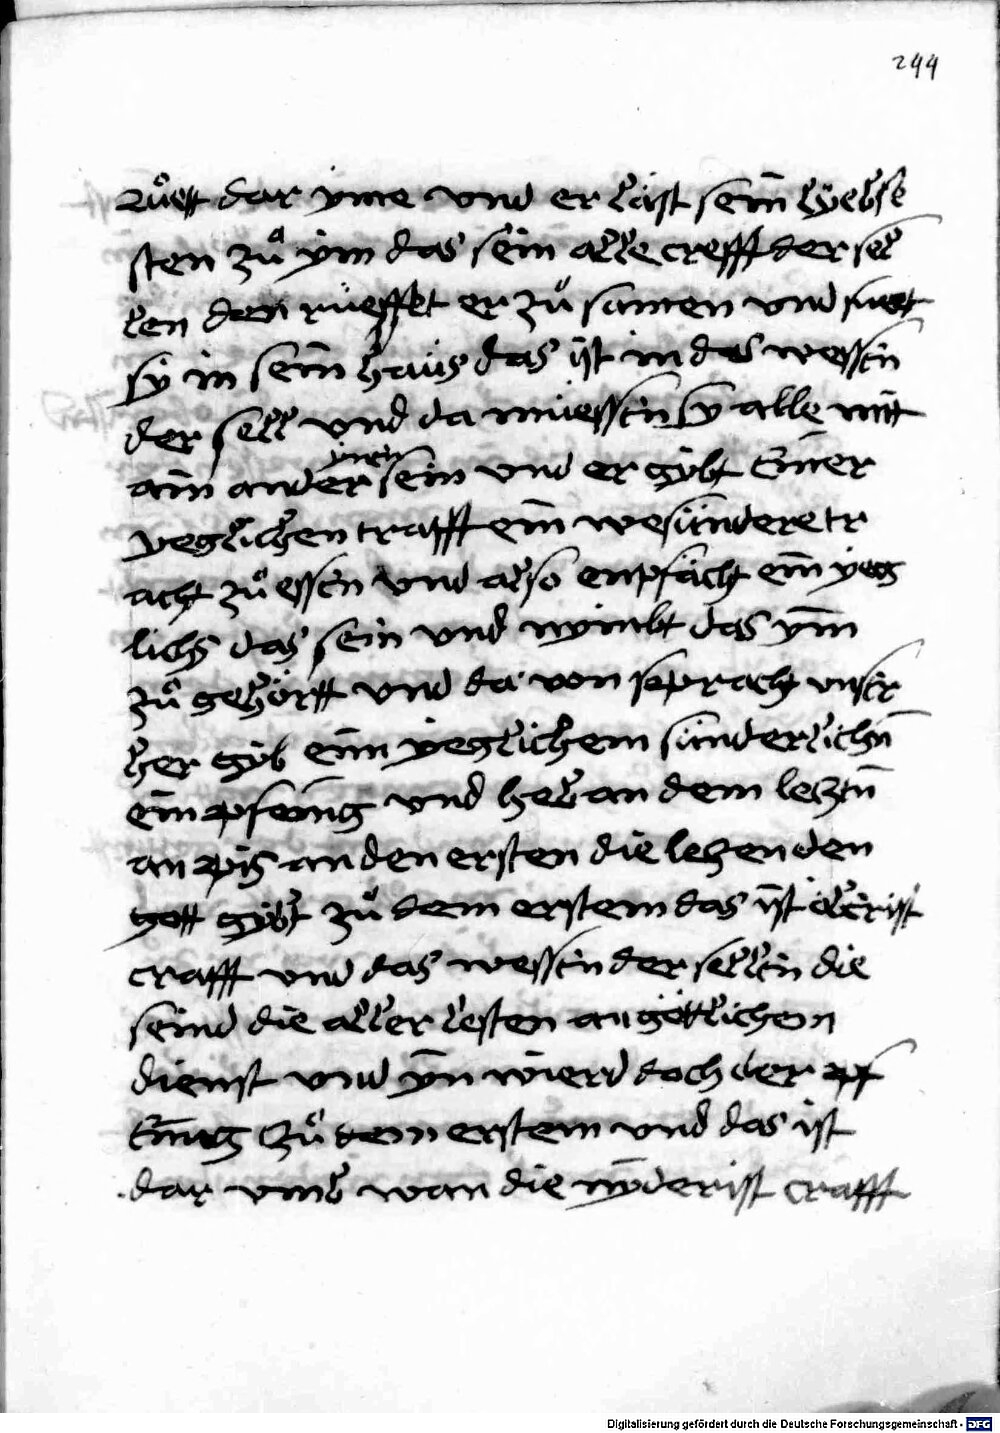 244
Ruͦett dar yme vnd er last sein lyebse
sten zuͦ ym das sein alle crefft der sel
len den rueffet er zuͦ samen vnd fuert
sy in sein haus das ist in das wessen
der sell vnd da muessen sy alle mitt
ain ander inen sein vnd er gybt Einer
yeglichen krafft ein wesundere tr
acht zuͦ essen vnd also enpfächt ein yeg
lichs das sein vnd nymbt das ym
zuͦ gehörtt vnd da von sprach vnser
her gyb eim yeglichem sunderlichn
ein pfening vnd heb an dem leczten
an pis an den ersten die leczen den
gott gybt zuͦ dem erstem das ist öbrist
crafft vnd das wessen der sellen die
seind die aller lesten an göttlichem
dienst vnd yn wierd doch der pf
Ening Zuͦ dem erstem vnd das ist
dar vmb wan die nyderist crafft
Digitalisierung gefördert durch die Deutsche Forschungsgemeinschaft - DFG